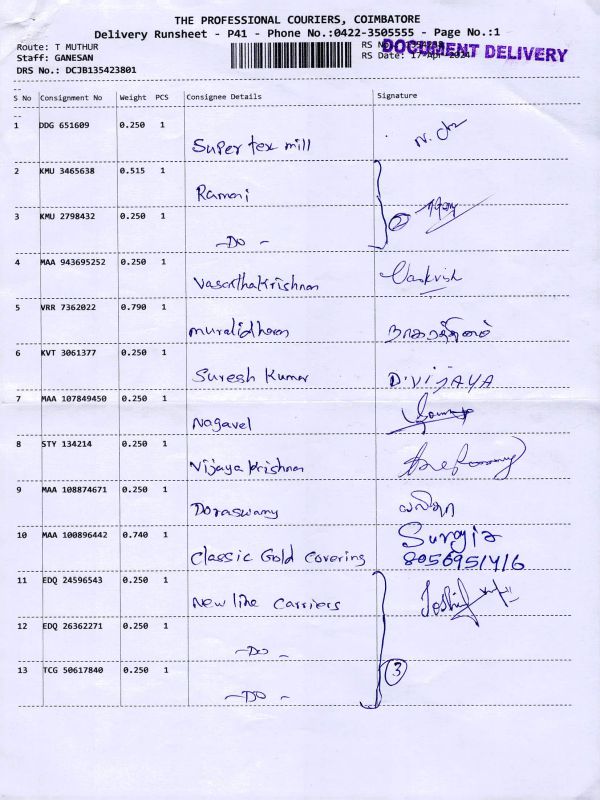 THE PROFESSIONAL COURIERS, COIMBATORE
Delivery Runsheet - P41 - Phone No.:0422-3505555 - Page No.:1
Route: T MUTHUR
RS No.:
DOCUMENT DELIVERY
Staff: GANESAN
RS Date: 17-Apr-2024
DRS No.: DCJB135423801
S No Consignment No Weight PCS Consignee Details Signature
1 DDG 651609 0.250 1
Super tex mill
2 KMU 3465638 0.515 1
Ramani
3 KMU 2798432 0.250 1
2
- Do -
4 MAA 943695252 0.250 1
Vasanthakrishnan
5 VRR 7362022 0.790 1
muralidharan
6 KVT 3061377 0.250 1
Suresh Kumar D.VIJAYA
7 MAA 107849450 0.250 1
Nagavel
8 STY 134214 0.250 1
Vijaya krishnan
9 MAA 108874671 0.250 1
Doraswamy
10 MAA 100896442 0.740 1
Classic Gold Covering
11 EDQ 24596543 0.250 1
New line Carriers
12 EDQ 26362271 0.250 1
- Do -
13 TCG 50617840 0.250 1
3
- Do -